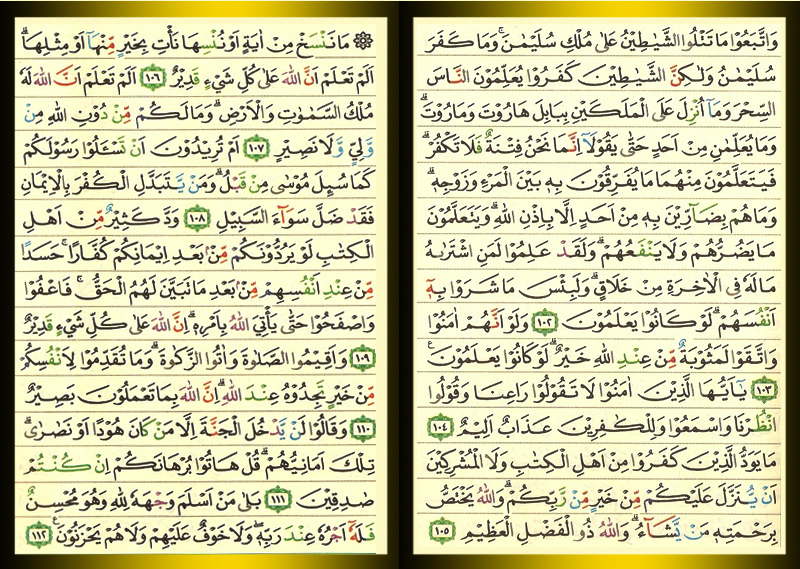 وَاتَّبَعُوْا مَا تَتْلُوا الشَّيٰطِيْنُ عَلٰى مُلْكِ سُلَيْمٰنَ ۚ وَمَا كَفَرَ
سُلَيْمٰنُ وَلٰكِنَّ الشَّيٰطِيْنَ كَفَرُوْا يُعَلِّمُوْنَ النَّاسَ
السِّحْرَ وَمَآ اُنْزِلَ عَلَى الْمَلَكَيْنِ بِبَابِلَ هَارُوْتَ وَمَارُوْتَ ۗ
وَمَا يُعَلِّمٰنِ مِنْ اَحَدٍ حَتّٰى يَقُوْلَآ اِنَّمَا نَحْنُ فِتْنَةٌ فَلَا تَكْفُرْ ۗ
فَيَتَعَلَّمُوْنَ مِنْهُمَا مَا يُفَرِّقُوْنَ بِهٖ بَيْنَ الْمَرْءِ وَزَوْجِهٖ ۗ
وَمَا هُمْ بِضَآرِّيْنَ بِهٖ مِنْ اَحَدٍ اِلَّا بِاِذْنِ اللّٰهِ ۗ وَيَتَعَلَّمُوْنَ
مَا يَضُرُّهُمْ وَلَا يَنْفَعُهُمْ ۗ وَلَقَدْ عَلِمُوْا لَمَنِ اشْتَرٰىهُ
مَا لَهٗ فِى الْاٰخِرَةِ مِنْ خَلَاقٍ ۗ وَلَبِئْسَ مَا شَرَوْا بِهٖٓ
اَنْفُسَهُمْ ۗ لَوْ كَانُوْا يَعْلَمُوْنَ ١٠٢ وَلَوْ اَنَّهُمْ اٰمَنُوْا
وَاتَّقَوْا لَمَثُوْبَةٌ مِّنْ عِنْدِ اللّٰهِ خَيْرٌ ۗ لَوْ كَانُوْا يَعْلَمُوْنَ ࣖ
١٠٣ يٰٓاَيُّهَا الَّذِيْنَ اٰمَنُوْا لَا تَقُوْلُوْا رَاعِنَا وَقُوْلُوا
انْظُرْنَا وَاسْمَعُوْا وَلِلْكٰفِرِيْنَ عَذَابٌ اَلِيْمٌ ١٠٤
مَا يَوَدُّ الَّذِيْنَ كَفَرُوْا مِنْ اَهْلِ الْكِتٰبِ وَلَا الْمُشْرِكِيْنَ
اَنْ يُّنَزَّلَ عَلَيْكُمْ مِّنْ خَيْرٍ مِّنْ رَّبِّكُمْ ۗ وَاللّٰهُ يَخْتَصُّ
بِرَحْمَتِهٖ مَنْ يَّشَآءُ ۗ وَاللّٰهُ ذُو الْفَضْلِ الْعَظِيْمِ ١٠٥
۞ مَا نَنْسَخْ مِنْ اٰيَةٍ اَوْ نُنْسِهَا نَأْتِ بِخَيْرٍ مِّنْهَآ اَوْ مِثْلِهَا ۗ
اَلَمْ تَعْلَمْ اَنَّ اللّٰهَ عَلٰى كُلِّ شَيْءٍ قَدِيْرٌ ١٠٦ اَلَمْ تَعْلَمْ اَنَّ اللّٰهَ لَهٗ
مُلْكُ السَّمٰوٰتِ وَالْاَرْضِ ۗ وَمَا لَكُمْ مِّنْ دُوْنِ اللّٰهِ مِنْ
وَّلِيٍّ وَّلَا نَصِيْرٍ ١٠٧ اَمْ تُرِيْدُوْنَ اَنْ تَسْـَٔلُوْا رَسُوْلَكُمْ
كَمَا سُىِٕلَ مُوْسٰى مِنْ قَبْلُ ۗ وَمَنْ يَّتَبَدَّلِ الْكُفْرَ بِالْاِيْمَانِ
فَقَدْ ضَلَّ سَوَآءَ السَّبِيْلِ ١٠٨ وَدَّ كَثِيْرٌ مِّنْ اَهْلِ
الْكِتٰبِ لَوْ يَرُدُّوْنَكُمْ مِّنْۢ بَعْدِ اِيْمَانِكُمْ كُفَّارًا ۚ حَسَدًا
مِّنْ عِنْدِ اَنْفُسِهِمْ مِّنْۢ بَعْدِ مَا تَبَيَّنَ لَهُمُ الْحَقُّ ۚ فَاعْفُوْا
وَاصْفَحُوْا حَتّٰى يَأْتِيَ اللّٰهُ بِاَمْرِهٖ ۗ اِنَّ اللّٰهَ عَلٰى كُلِّ شَيْءٍ قَدِيْرٌ
١٠٩ وَاَقِيْمُوا الصَّلٰوةَ وَاٰتُوا الزَّكٰوةَ ۗ وَمَا تُقَدِّمُوْا لِاَنْفُسِكُمْ
مِّنْ خَيْرٍ تَجِدُوْهُ عِنْدَ اللّٰهِ ۗ اِنَّ اللّٰهَ بِمَا تَعْمَلُوْنَ بَصِيْرٌ
١١٠ وَقَالُوْا لَنْ يَّدْخُلَ الْجَنَّةَ اِلَّا مَنْ كَانَ هُوْدًا اَوْ نَصٰرٰى ۗ
تِلْكَ اَمَانِيُّهُمْ ۗ قُلْ هَاتُوْا بُرْهَانَكُمْ اِنْ كُنْتُمْ
صٰدِقِيْنَ ١١١ بَلٰى مَنْ اَسْلَمَ وَجْهَهٗ لِلّٰهِ وَهُوَ مُحْسِنٌ
فَلَهٗٓ اَجْرُهٗ عِنْدَ رَبِّهٖ ۖ وَلَا خَوْفٌ عَلَيْهِمْ وَلَا هُمْ يَحْزَنُوْنَ ࣖ ١١٢